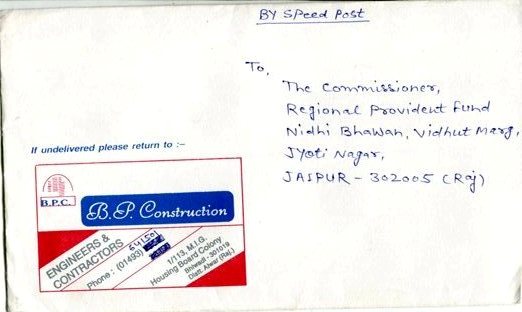 BY SPeed Post
To,
The Commissioner,
Regional Provident Fund
Nidhi Bhawan, Vidhut Marg,
Jyoti Nagar,
JAIPUR - 302005 (Raj)
If undelivered please return to :–
B.P.C.
B.P. Construction
ENGINEERS &
CONTRACTORS
Phone : (01493)
1/113, M.I.G.
Housing Board Colony
Bhiwadi - 301019
Distt. Alwar (Raj.)